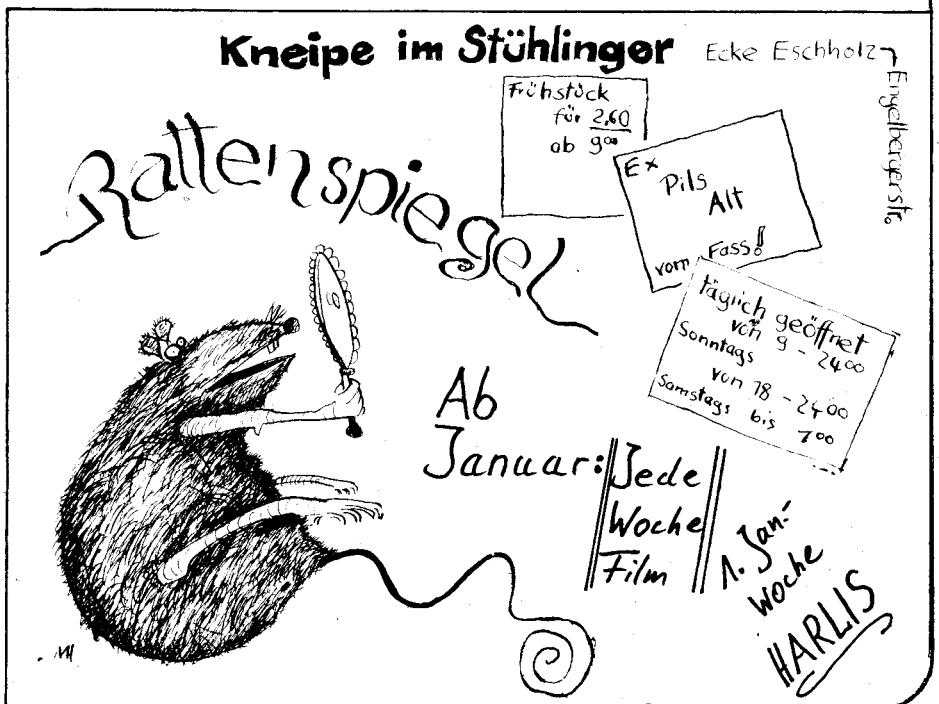 Kneipe im Stühlinger
Ecke Eschholz-
Engelbergerstr.
Rattenspiegel
Frühstück
für 2.60
ab 9⁰⁰
Ex
Pils
Alt
vom Fass!
täglich geöffnet
von 9 - 24⁰⁰
Sonntags
von 18 - 24⁰⁰
Samstags bis
1⁰⁰
Ab
Januar:
Jede
Woche
Film
1. Jan.-
Woche
HARLIS